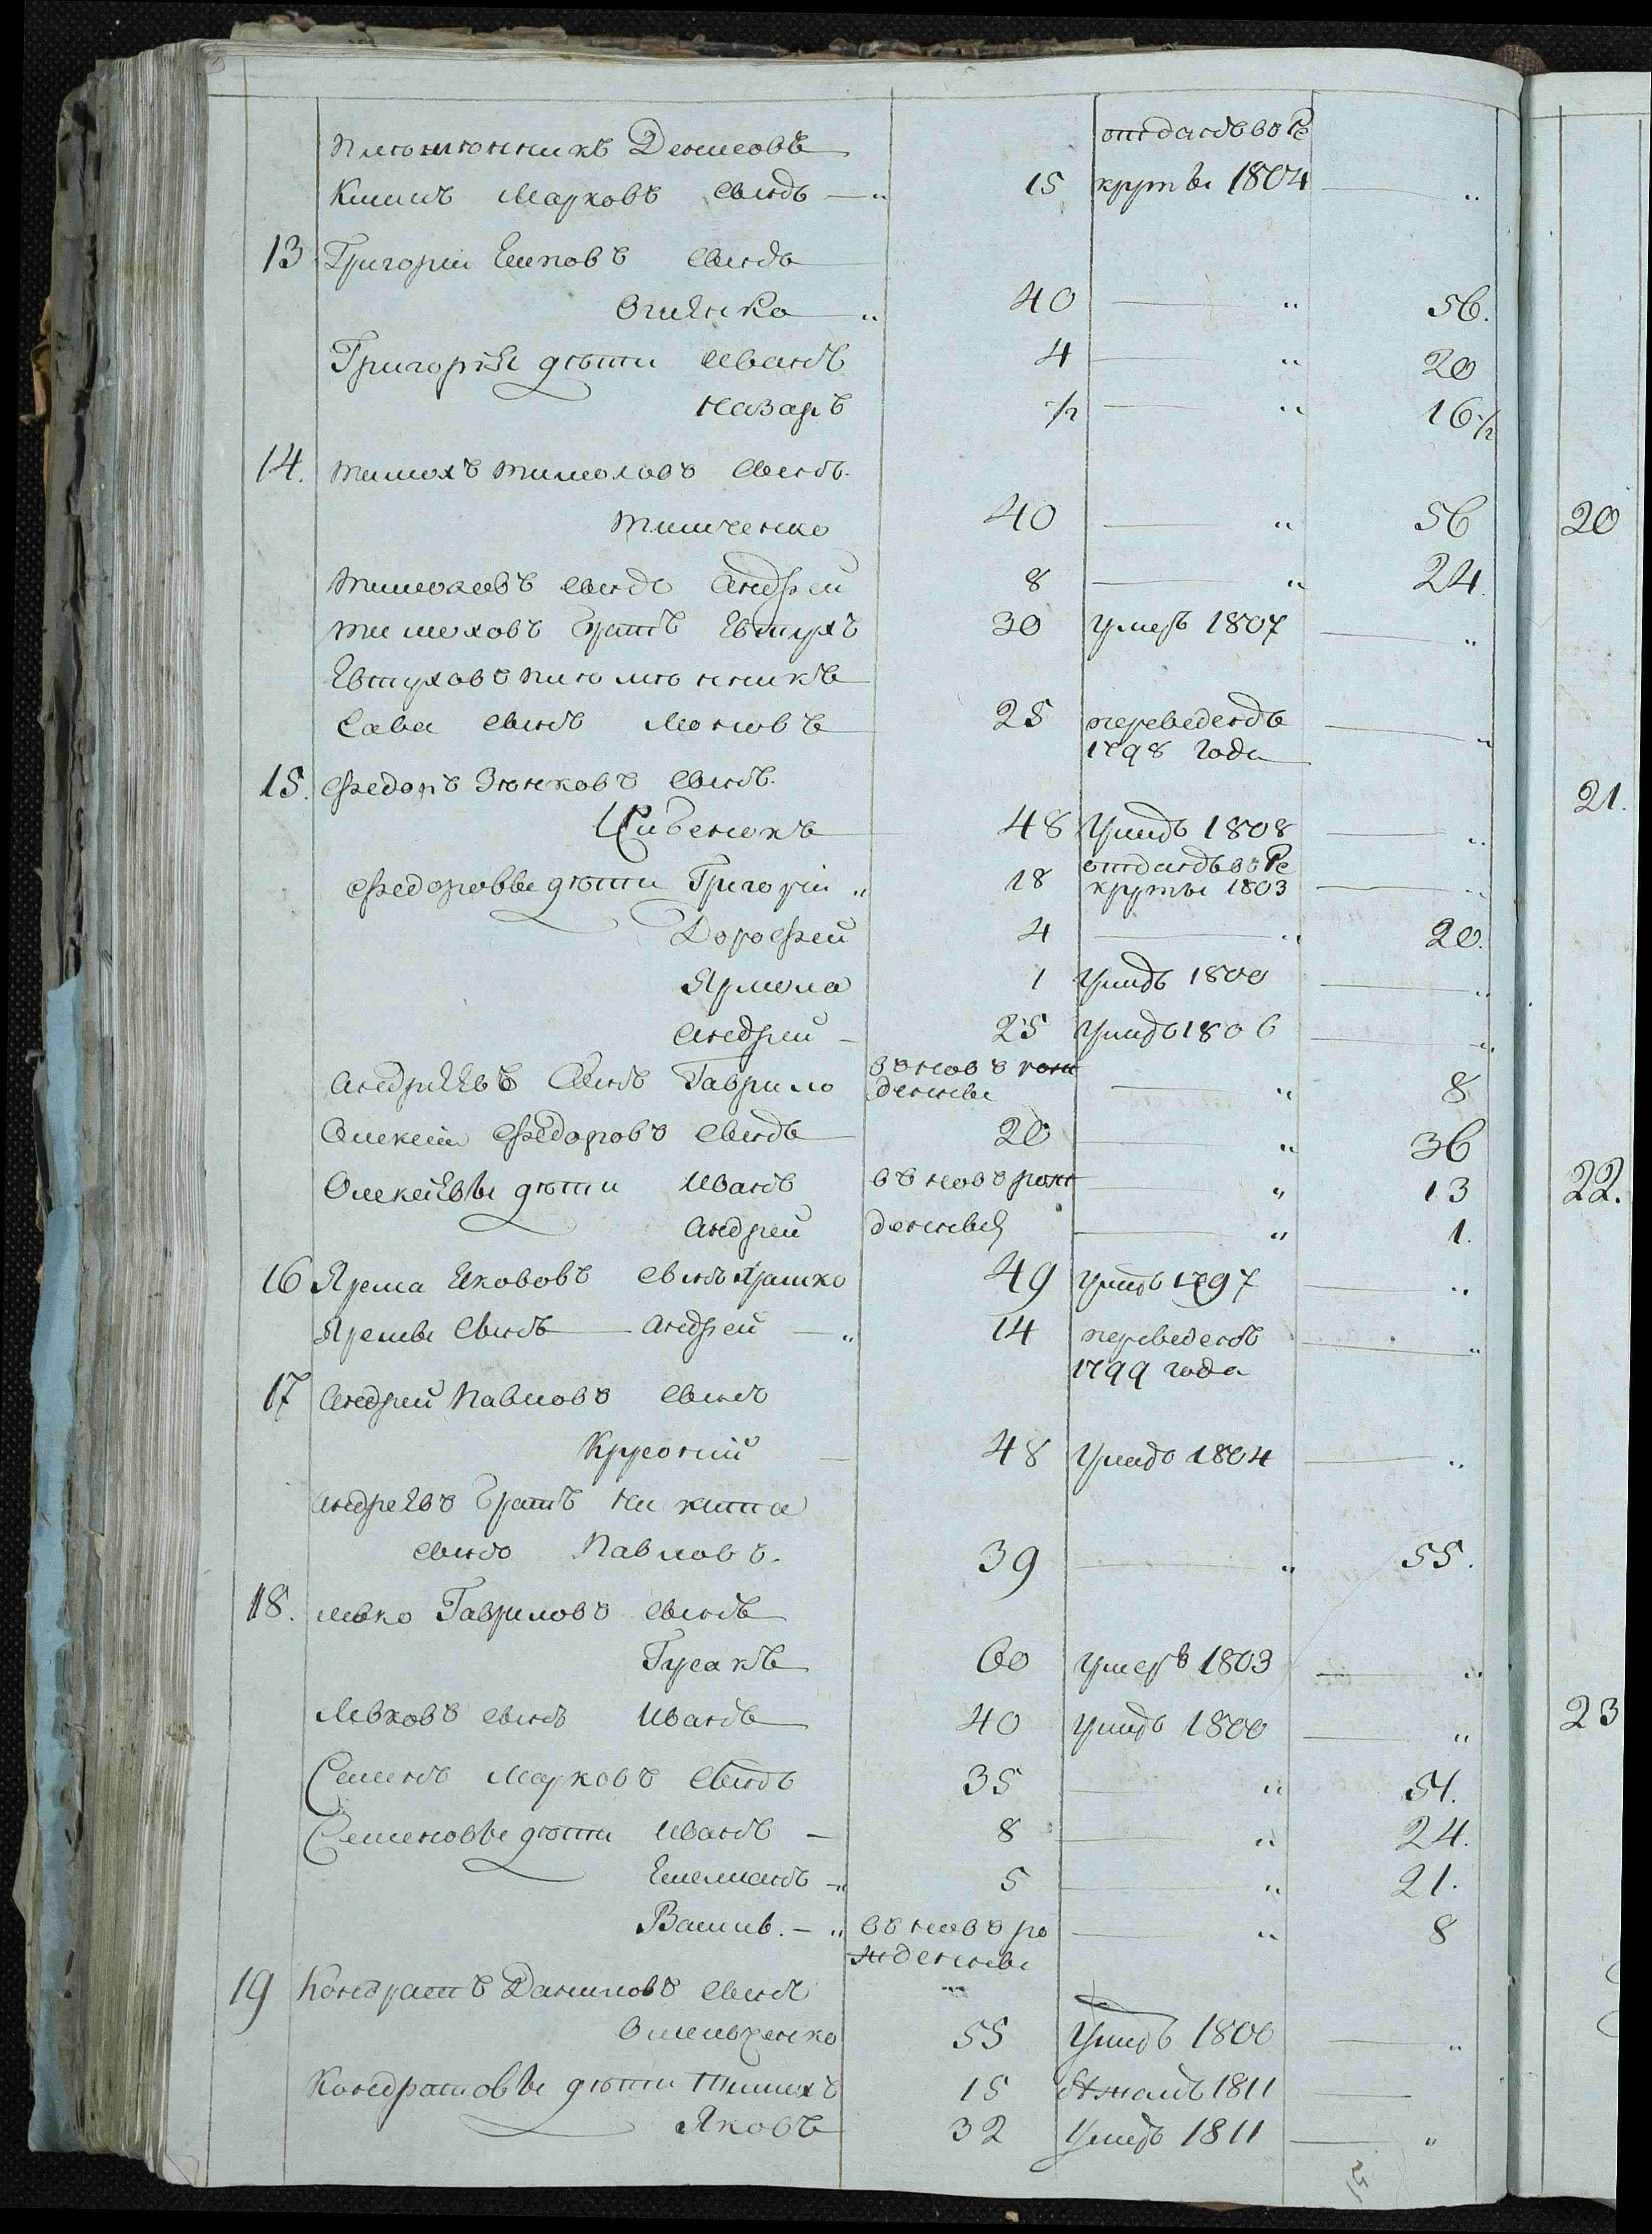 отданъ во Ре
племянникъ Денисовъ
Климъ Марковъ сынъ — „ 15 круты 1804 — „
13 Григорий Еliповъ сынъ
40 — „ 56.
Григорія дѣти Иванъ 4 — „ 20
Назаръ 1/2 — „ 16 1/2
14. тимохъ тимоховъ сынъ
тимченко 40 — „ 56
тимохеевъ сынъ Андрей 8 — „ 24.
тимоховъ братъ Евтухъ 30 умеръ 1807 — „
Евтуховъ племянникъ
Сава сынъ 25 переведенъ — „
1798 года
15. Федоръ Зѣнковъ сынъ
Цибенюкъ 48 умеръ 1808 — „
Федоровы дѣти Григорій „ 18 отданъ во Ре круты 1803 — „
Дорофей 4 — „ 20.
Ярмола 1 умеръ 1800 — „
Андрей — 25 умеръ 1806 — „
Андрѣевъ сынъ Гаврило вновъ рож денны — „ 8
Олексій Федоровъ сынъ 20 — „ 36
Олексѣевы дѣти Иванъ вновъ рож — „ 13
Андрей денныя — „ 1.
16 Ярема Яковъ сынъ Ярашко 49 умеръ 1797 — „
Яремы сынъ — Андрей — „ 14 переведенъ — „
1799 года
17 Андрей Павловъ сынъ
48 умеръ 1804 — „
Андреевъ братъ Никита
сынъ Павловъ. 39 — „ 55.
18. левко Гавриловъ сынъ
Гусакъ 60 умеръ 1803 — „
Левковъ сынъ Иванъ 40 умеръ 1800 — „
Семенъ Марковъ сынъ 35 — „ 51.
Семеновы дѣти Иванъ — 8 — „ 24.
Емелианъ — „ 5 — „ 21.
Василь. — „ вновъ ро — „ 8
жденны
19 Кондратъ Даниловъ сынъ
Омельченко 55 умеръ 1800 — „
Кондратовы дѣти тимохъ 15 бѣжалъ 1811 —
Яковъ 32 умеръ 1811 — „
20
21.
22.
23